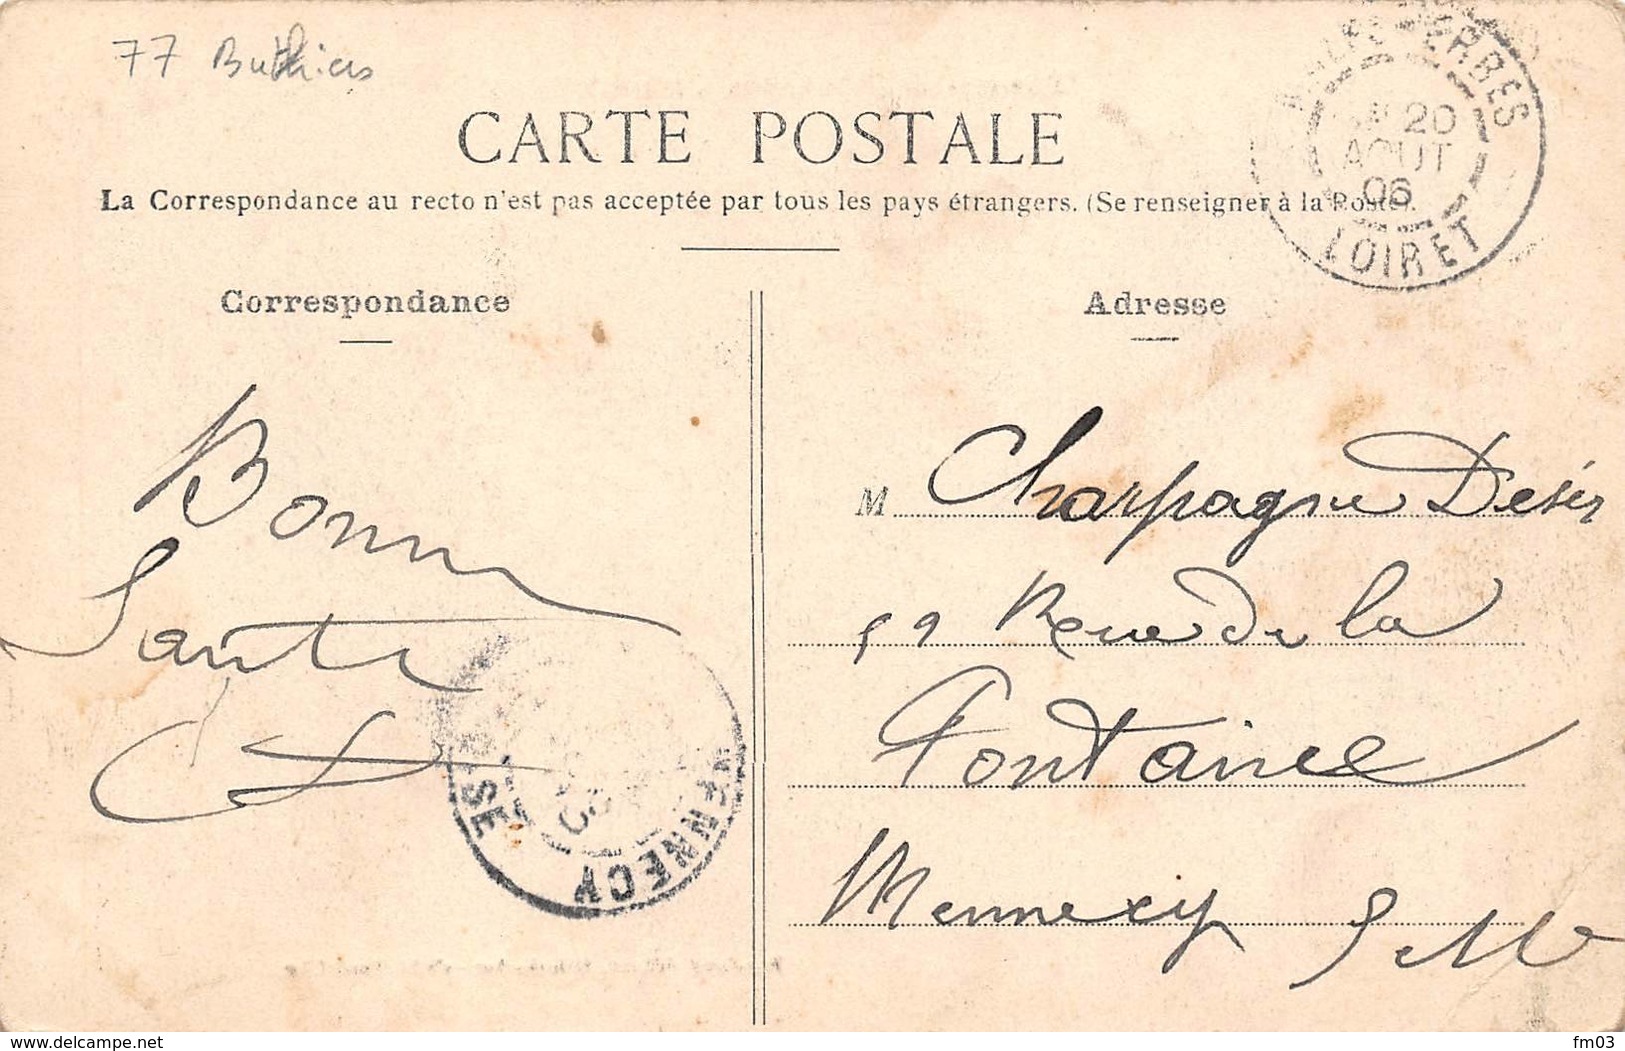 77 Buthiers
CARTE POSTALE
La Correspondance au recto n'est pas acceptée par tous les pays étrangers. (Se renseigner à la Poste).
20
AOUT
06
LOIRET
Correspondance
Bonne
Santé
MENNECY
Adresse
M Charpagne Désir
59 Rue de la
Fontaine
Mennecy S M
www.delcampe.net
fm03